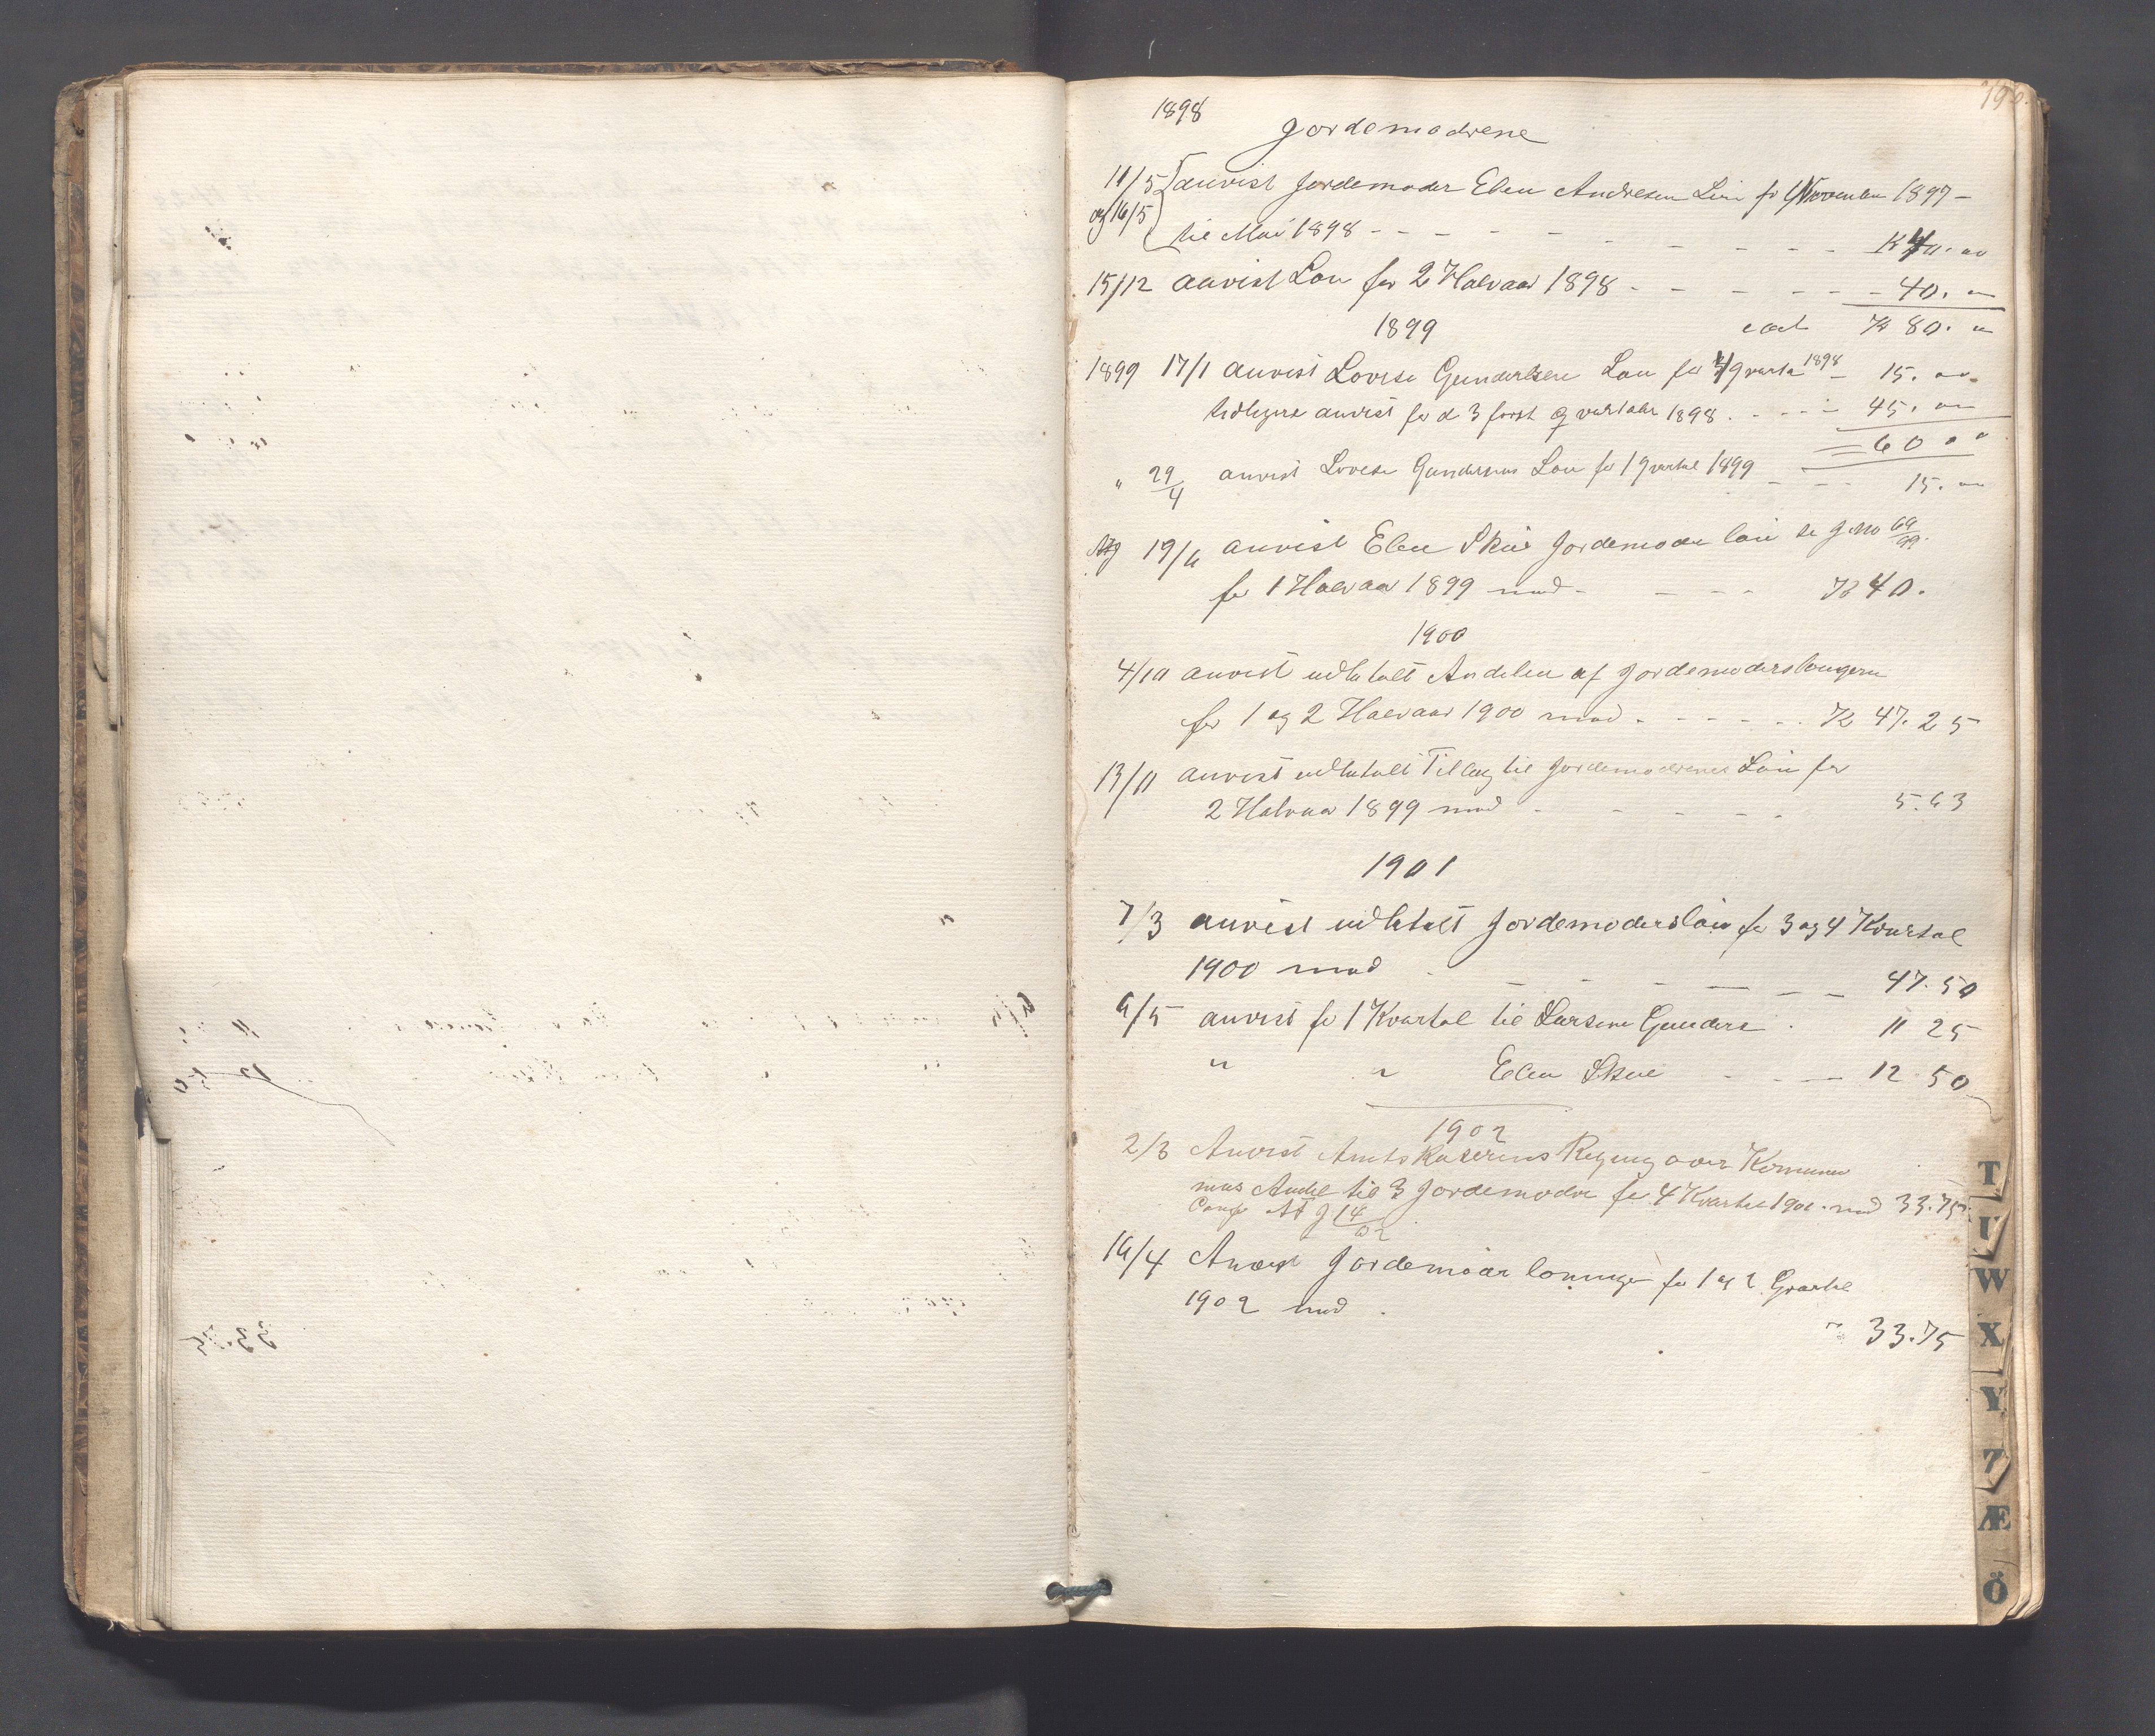 190.
1898
Jordemødrene
11/5 anvist Jordemoder Elen Andresen Løn fr November 1897 -
og 16/5 til Mai 1898 - - - - - - - - - K 40. 00
15/12 anvist Løn for 2 Halvaar 1898 - - - - - - 40. 00
1899 K 80. 00
1899 17/1 anvist Lovise Gundersen Løn for 4 Qvartal 1898 - 15. 00
tidligere anvist for d 3 først Qvartaler 1898 . - - - - 45. 00
60 00
" 29/4 anvist Lovise Gundersens Løn for 1 Qvartal 1899 - - - 15. 00
19/6 anvist Elen Skeie Jordemoder løn se J. No 69/99
for 1 Halvaar 1899 med - - - - K 40.
1900
4/10 anvist udbetalt Andelen af Jordemoderslønningerne
for 1 og 2 Halvaar 1900 med - - - - - K 47. 25
13/11 anvist udbetalt Tillæg til Jordemødrenes Løn for
2 Halvaar 1899 med - - - - - 5. 63
1901
7/3 anvist udbetalt Jordemodersløn for 3 og 4 Kvartal
1900 med - - - - - - - 47. 50
6/5 anvist for 1 Kvartal til Gunders . 11 25
" " Elen Skeie - - - 12 50
1902
2/3 Anvist Amtskasserens Regning over Kommu
nens Andel til 3 Jordemødre for 4 Kvartal 1901. med 33. 75
Conf J 14/02
16/4 Anvist Jordemoder lønninger for 1 og 2 Qvartal
1902 med .
" 33. 75
T
U
W
X
Y
Z
Æ
Ö